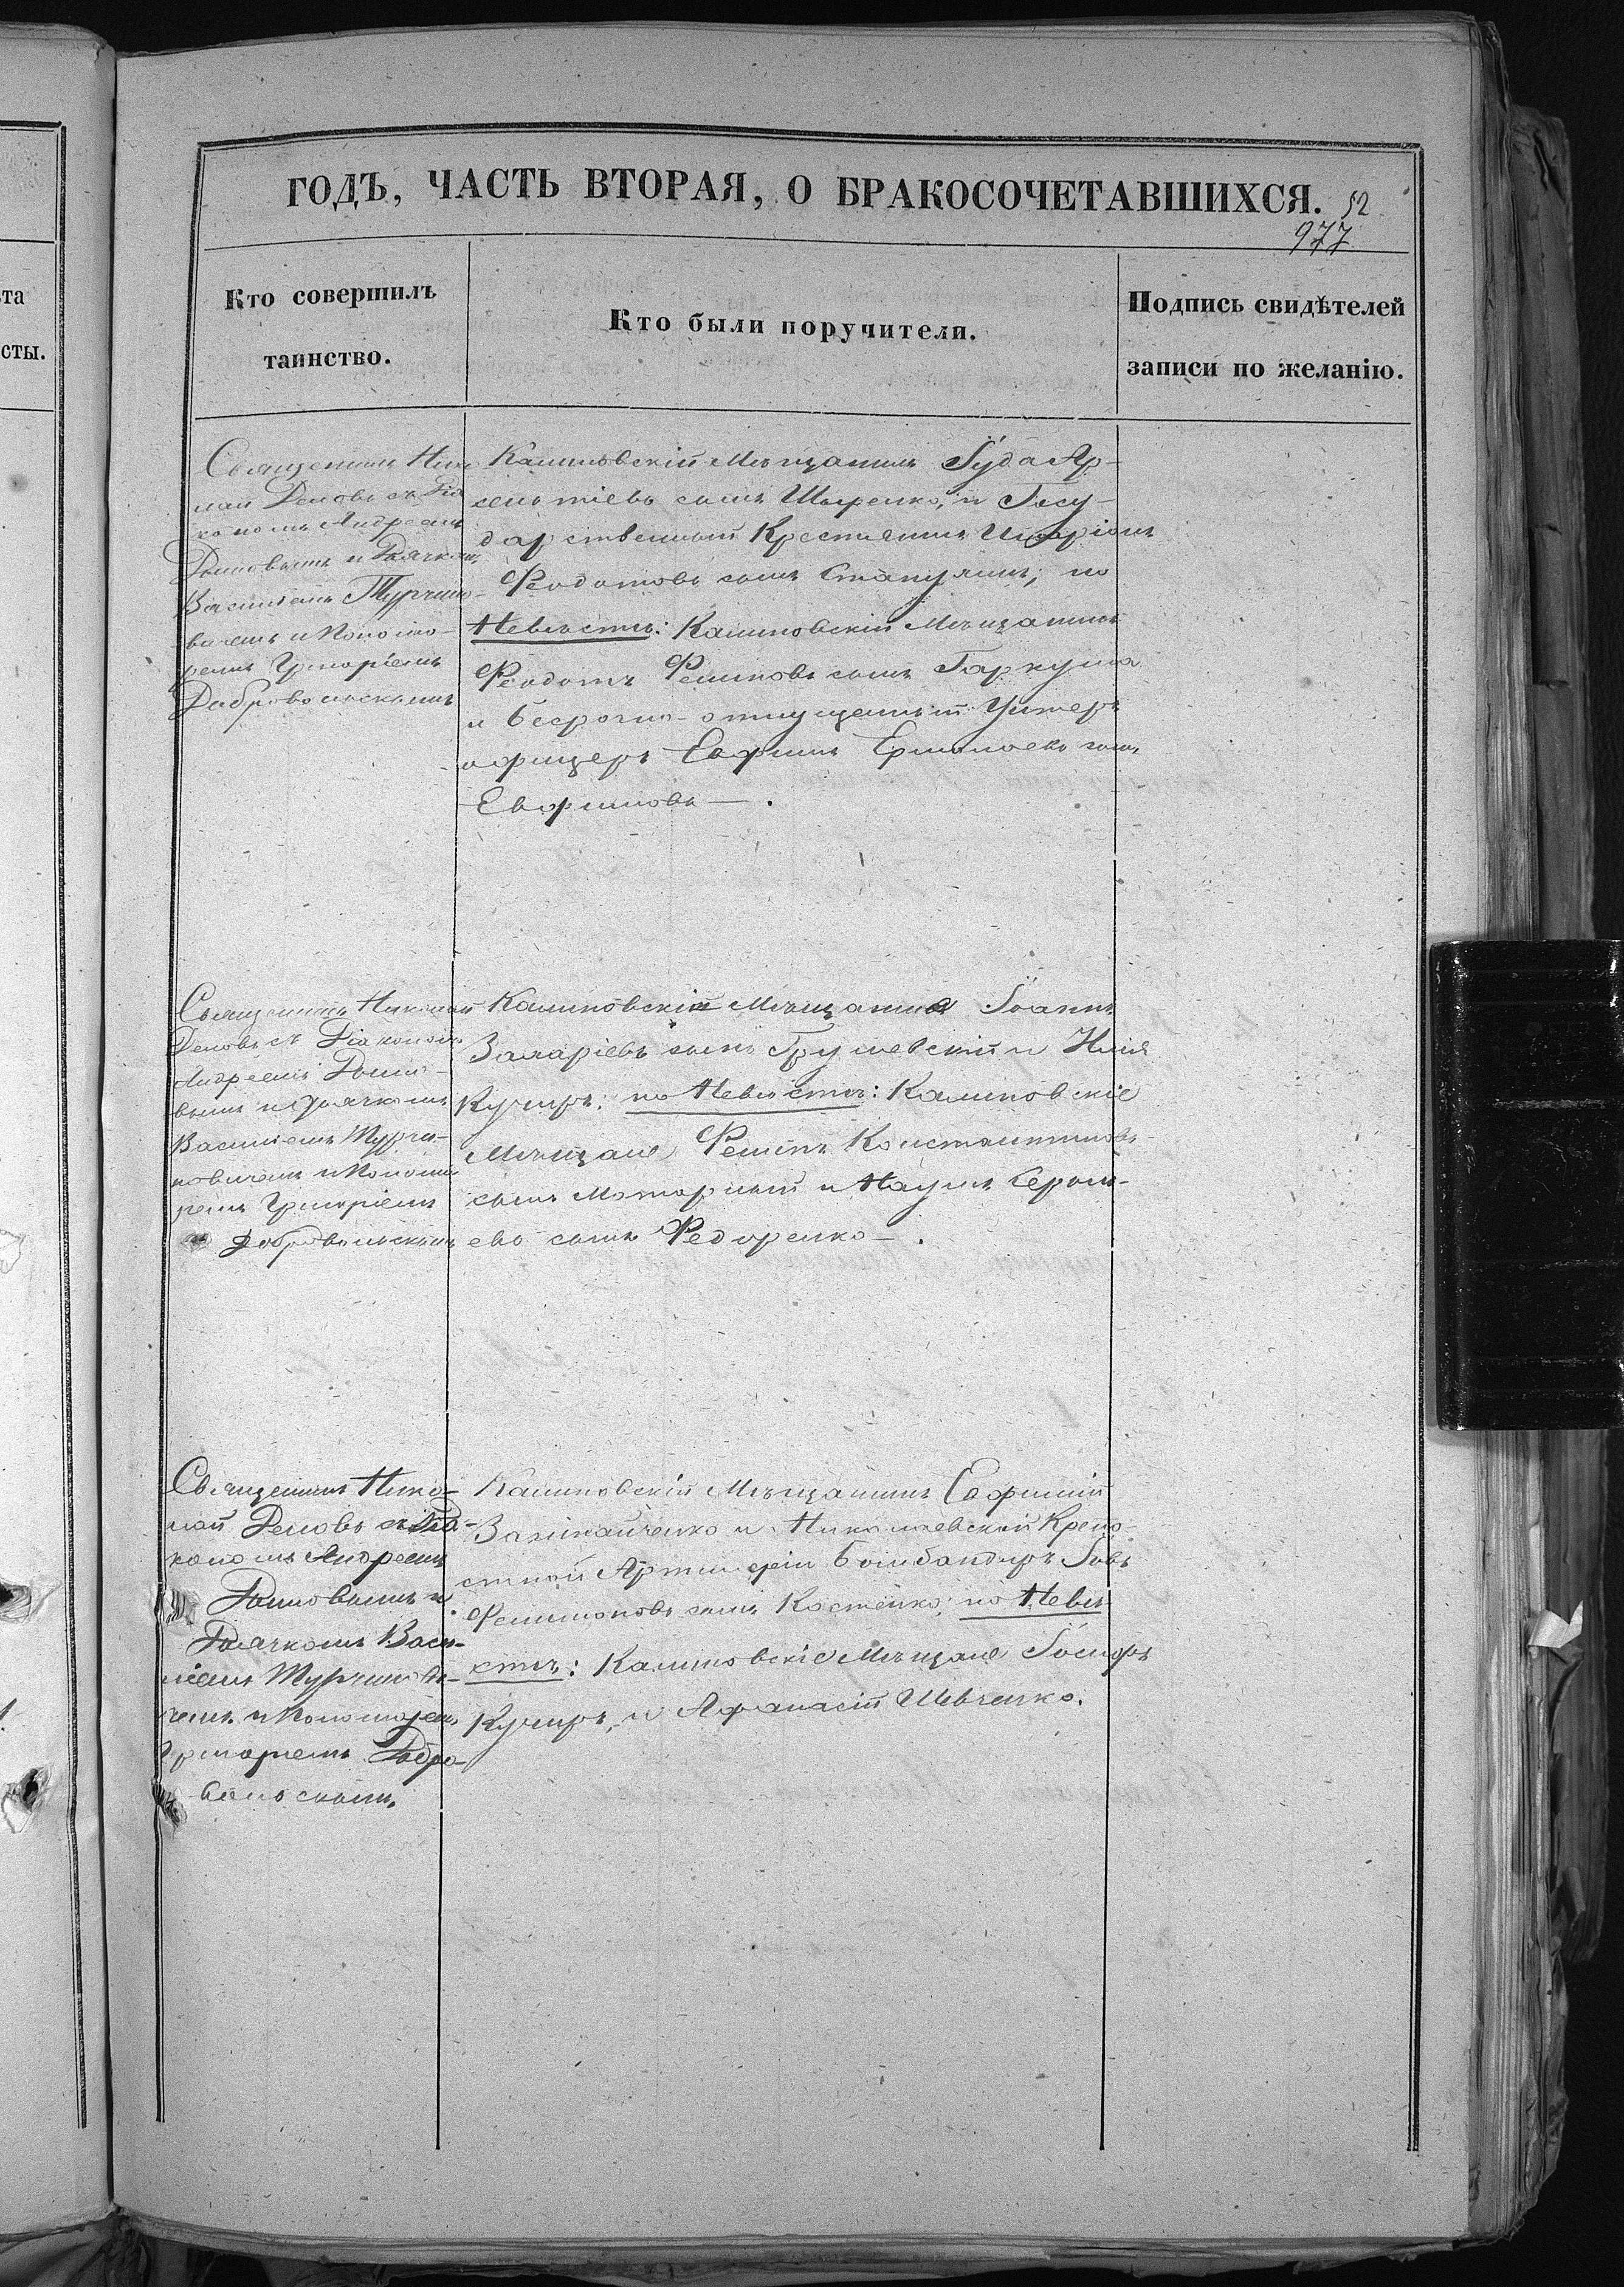 та
сты.
ГОДЪ, ЧАСТЬ ВТОРАЯ, О БРАКОСОЧЕТАВШИХСЯ.
52
977
Кто совершилъ
таинство.
Кто были поручители.
Подпись свидѣтелей
записи по желанію.
Священникъ Нико
лай Деловъ съ Діа
кономъ Андреемъ
и Дьячкомъ
Василіемъ Турчино-
вичемъ и Пономо-
ремъ Григоріемъ
Добровольскимъ
Калиновскій Мѣщанинъ Іуда Ар-
сентіевъ сынъ и Госу-
дарственный Крестьянинъ Иларіонъ
Феодотовъ сынъ по
Невѣстѣ: Калиновскій Мѣщанинъ
Феодотъ Филиповъ сынъ Гаркуша
и безсрочно-отпущенный Унтеръ
офицеръ Ефимъ Ермолаевъ сынъ
Священникъ Николай
Деловъ съ Діакономъ
Андреемъ
и Дьячкомъ
Василіемъ Турчи-
новичемъ и Пономо
ремъ Григоріемъ
Добровольскимъ
Калиновскій Мѣщанинъ Іоаннъ
Захаріевъ сынъ Грушевскій и Илія
Куширъ. по Невѣстѣ: Калиновскіе
Мѣщане Филипъ Константиновъ
сынъ Моторный и Наумъ Серги-
евъ сынъ Федоренко.
Священникъ Нико-
лай Деловъ съ Діа-
кономъ Андреемъ
и
Дьячкомъ Васи-
ліемъ Турчинови-
чемъ и Пономоремъ
Григоріемъ Добро-
вольскимъ.
Калиновскій Мѣщанинъ Евфимій
и Николаевской Крепо
стной Артилеріи Бомбандиръ Іовъ
Филимоновъ сынъ Костенко; по Невѣ
стѣ: Калиновскіе Мѣщане Іосифъ
Куширъ, и Афанасій Шевченко.